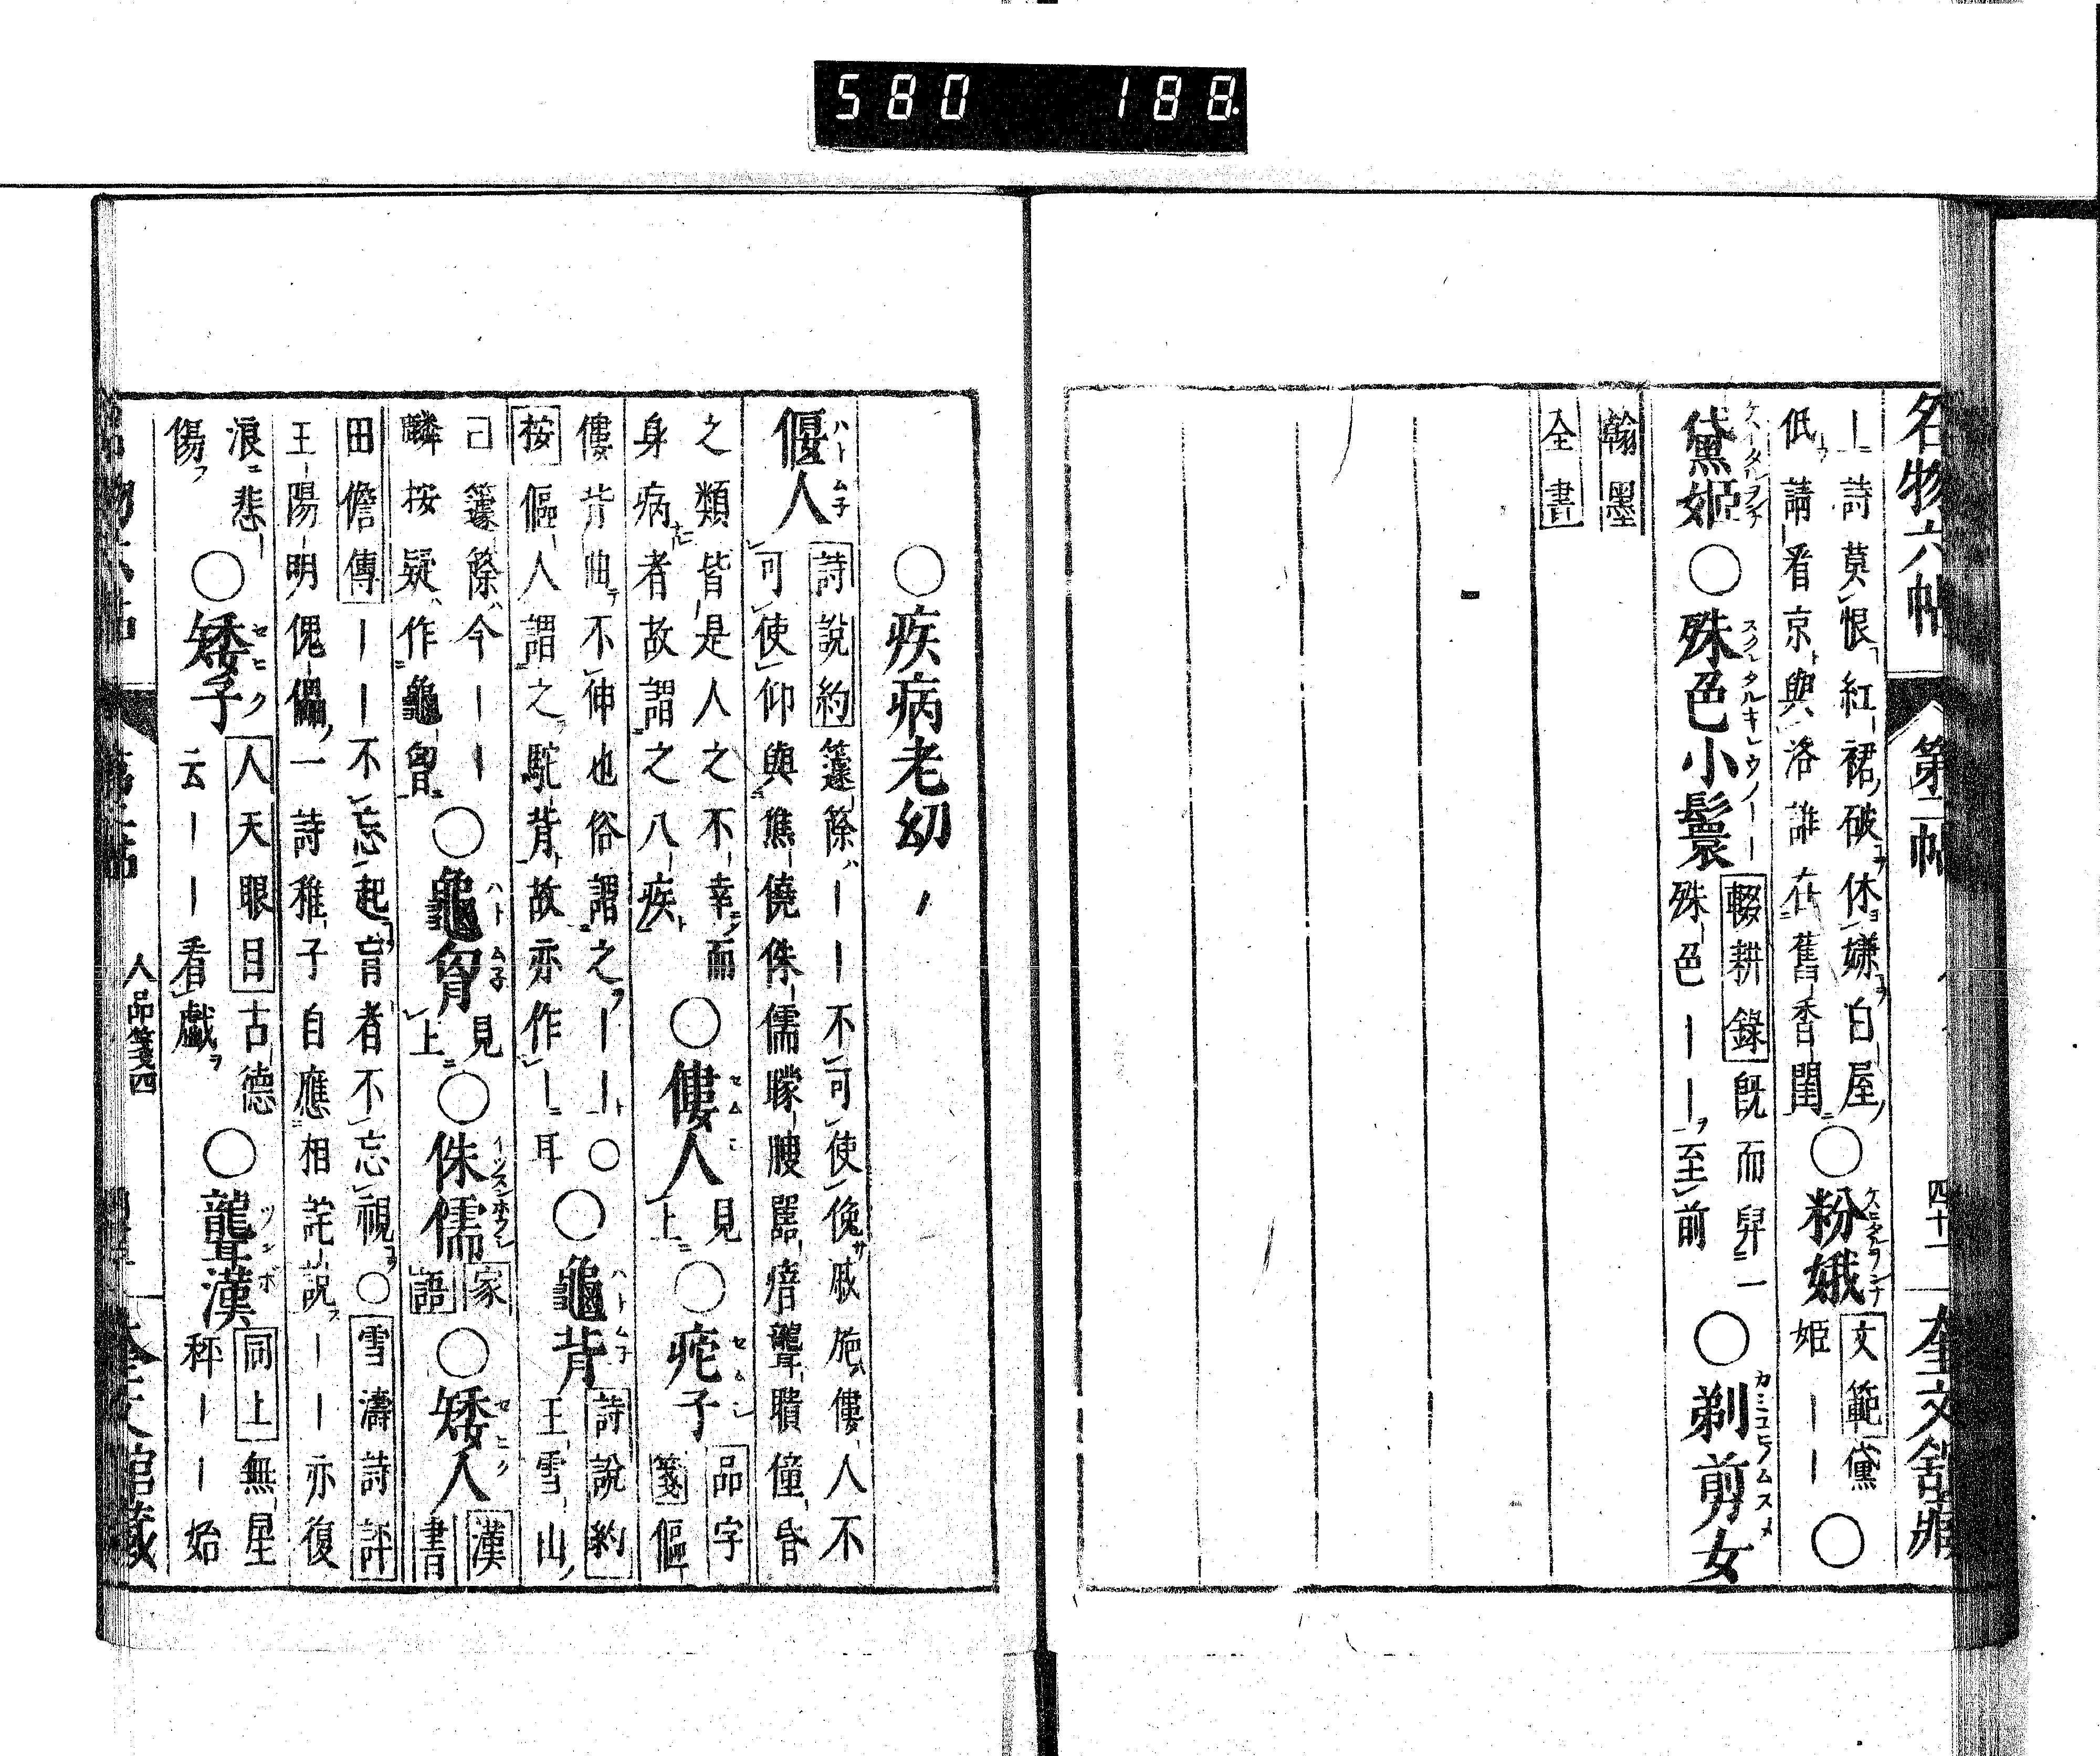 580 188
名物六帖 第二帖 四十一 奎文舘藏
｜詩莫恨紅裙破休嫌白屋
低請看京與洛誰在舊香閨
○粉娥 文範黛
姬｜｜○
黛姬○殊色小鬟 輟耕錄既而舁一
殊色｜｜至前
○剃剪女
翰墨
全書
○疾病老幼
偃人 詩說約籧篨｜｜不可使俛戚施僂人不
可使仰與僬僥侏儒矇瞍嚚瘖聾聵僮昏
之類皆是人之不幸而
身病者故謂之八疾
○僂人 見
上
○疧子 品字
箋傴
僂背曲不伸也俗謂之｜｜○
按傴人謂之駝背故亦作｜耳
○龜背 詩說約
王雪山
己籧篨今｜｜
麟按疑作龜胷
○龜胷 見
上
○侏儒 家
語
○矮人 漢
書
田儋傳｜｜不忘起盲者不忘視○雪濤詩評
王陽明傀儡一詩稚子自應相詫說｜｜亦復
浪悲
傷
○矮子 人天眼目古德
云｜｜看戲
○聾漢 同上無星
秤｜｜始
人品箋四